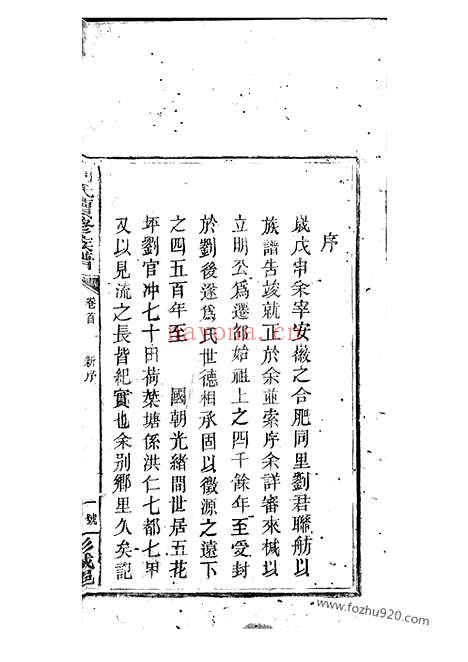 序
歲戊申余宰安徽之合肥同里劉君聯舫以
族譜告竣就正於余並索序余詳審來槭以
立明公為遷邵始祖上之四千餘年至受封
於劉後遂為氏世德相承固以徵源之遠下
之四五百年至 國朝光緒間世居五花
坪劉官沖七十田荷葉塘係洪仁七都七甲
及以見流之長皆紀實也余別鄉里久矣記
氏續修族譜
卷首
新序
一號
彭城邑
nayona.cn
www.fozhu920.com